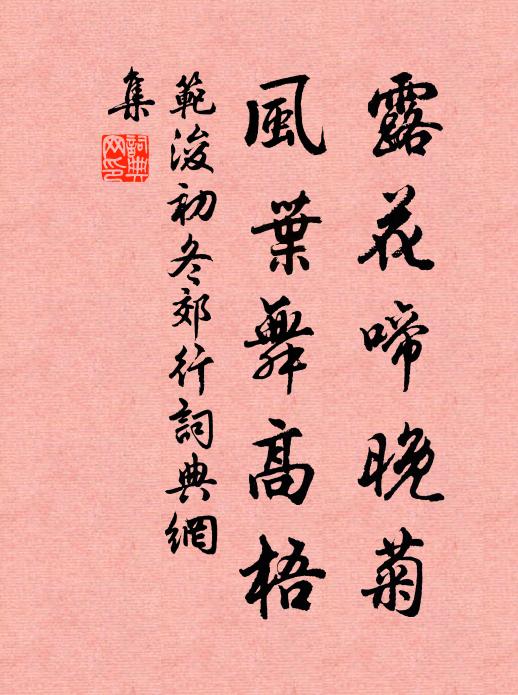 露花啼晚菊
風葉舞高梧
範浚初冬郊行詞典網
集
詞典網印